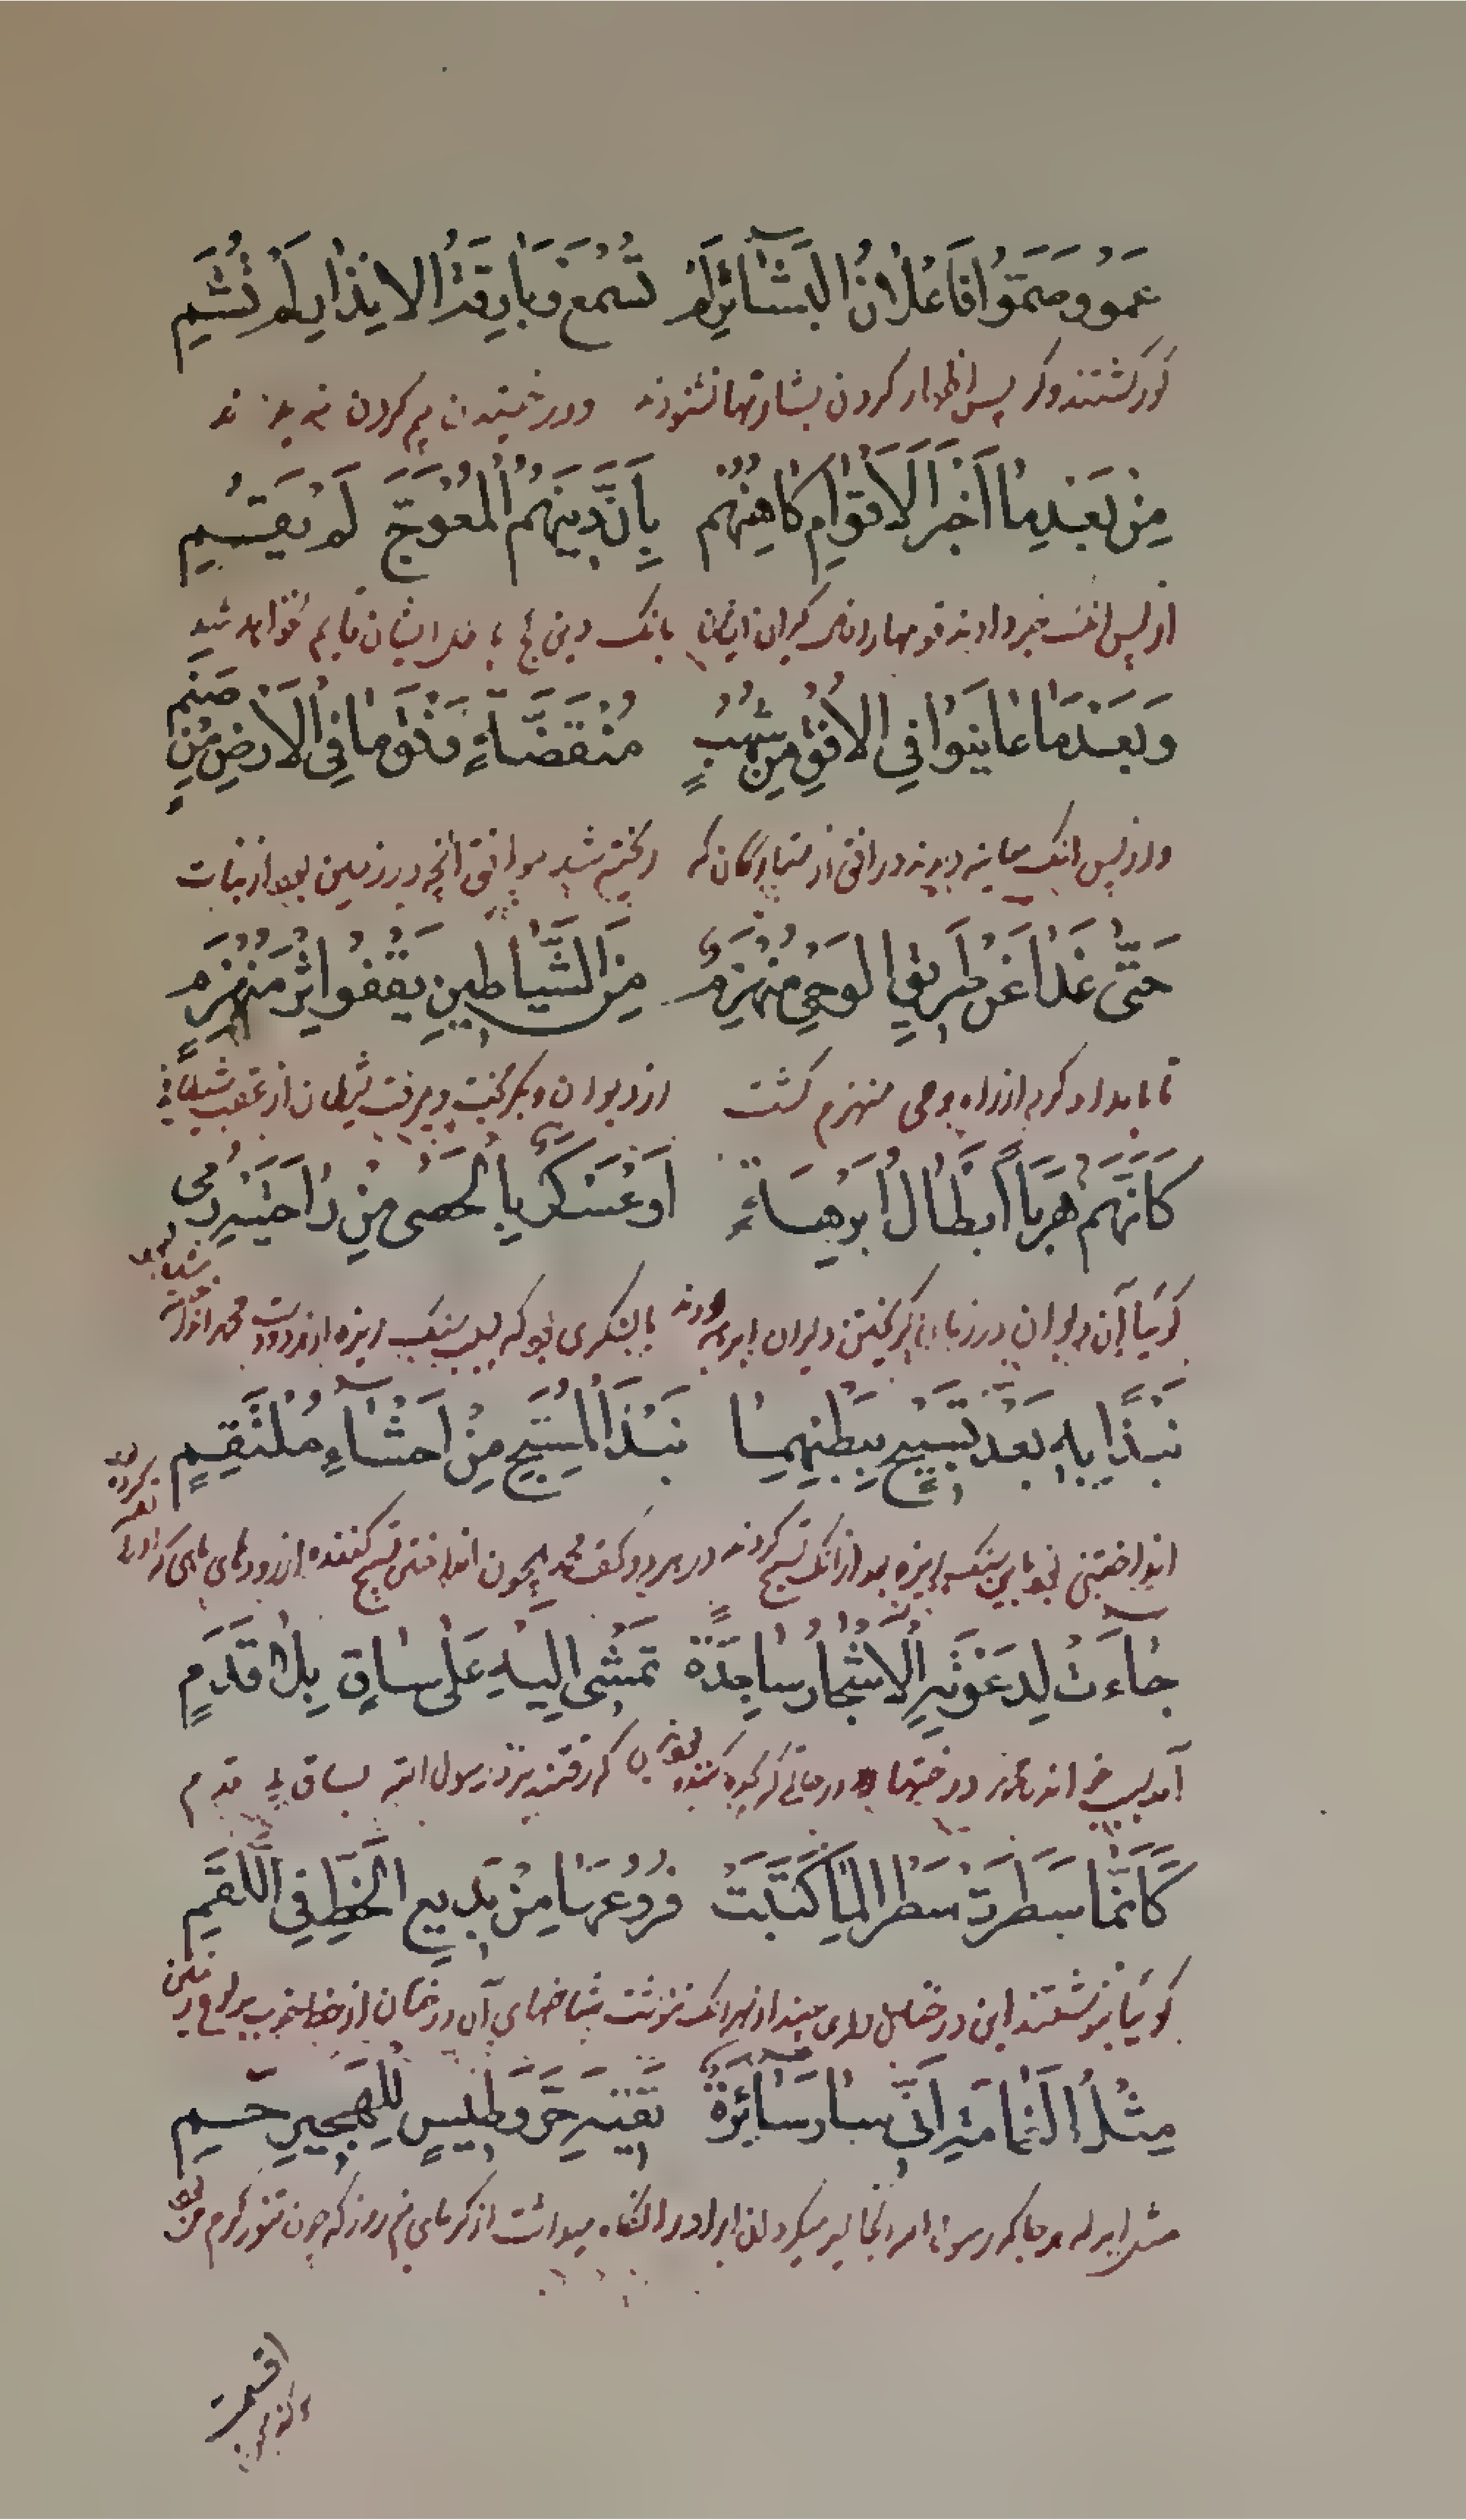 عَمُوا وَصَمُّوا فَاَعْلَانُ الْبَشَآئِرِ لَمْ تُسْمَعْ وَبَارِقَةُ الْاِنْذَارِ لَمْ تُشَمِ
کور کشتند وکر پس اظهار کردن بشارتها نشنودند ودرخشیدن بیم کردن
مِنْ بَعْدِ مَا اَخْبَرَ الْاَقْوَامَ كَاهِنُهُمْ بِاَنَّ دِينَهُمُ الْمُعْوَجَّ لَمْ يَقُمِ
از پس انک خبر دادند قومها را بانک دین کج ایشان قایم نخواهد شد
وَبَعْدَ مَا عَايَنُوا فِي الْاُفْقِ مِنْ شُهُبٍ مُنْقَضَّةٍ وَفْقَ مَا فِي الْاَرْضِ مِنْ صَنَمٍ
واز پس انک معاینه دیدند در افق از ستارکان که ریخته شد موافق انچه در زمین بود از بتات
حَتَّى غَدَا عَنْ طَرِيقِ الْوَحْيِ مُنْهَزِمٌ مِنَ الشَّيَاطِينِ يَقْفُو اِثْرَ مُنْهَزِمٍ
تا بامداد کرد از راه وحی منهزم کشت از دیوان و بکریخت ومیرفت شیطان از عقب شیطانی
كَاَنَّهُمْ هَرَبًا اَبْطَالُ اَبْرَهَةٍ اَوْ عَسْكَرٌ بِالْحَصَى مِنْ رَاحَتَيْهِ رُمِي
کوئیا آن دیوان در زمان کریختن دلیران ابرهه بودند یا لشکری بود که بسنک ریزه از دو دست محمد
نَبْذًا بِهِ بَعْدَ تَسْبِيحٍ بِبَطْنِهِمَا نَبْذَ الْمُسَبِّحِ مِنْ اَحْشَآءِ مُلْتَقِمٍ
انداختنی بعد از انک تسبیح کردند در هر دو کف محمد همچون انداختن تسبیح کننده از رودهای ماهی
جَآءَتْ لِدَعْوَتِهِ الْاَشْجَارُ سَاجِدَةً تَمْشِي اِلَيْهِ عَلَى سَاقٍ بِلَا قَدَمٍ
آمدند درختها در حالی که سجده کننده بودند که رفتند نزد رسول الله بساق بی قدم
كَاَنَّمَا سَطَرَتْ سَطْرًا لِمَا كَتَبَتْ فُرُوعُهَا مِنْ بَدِيعِ الْخَطِّ فِي اللَّقَمِ
کوئیا بنوشتند این درختان از بهر انک نوشت شاخهای آن درختان از خط خوب
مِثْلُ الْغَمَامَةِ اَنَّى سَارَ سَآئِرَةٌ تَقِيهِ حَرَّ وَطِيسٍ لِلْهَجِيرِ حَمِي
مثل ابر هر جا که رسول الله انجا سیر میکرد ان ابر او را نکاه میداشت از کرمای نیم روز که چون تنور کرم
اقسمت